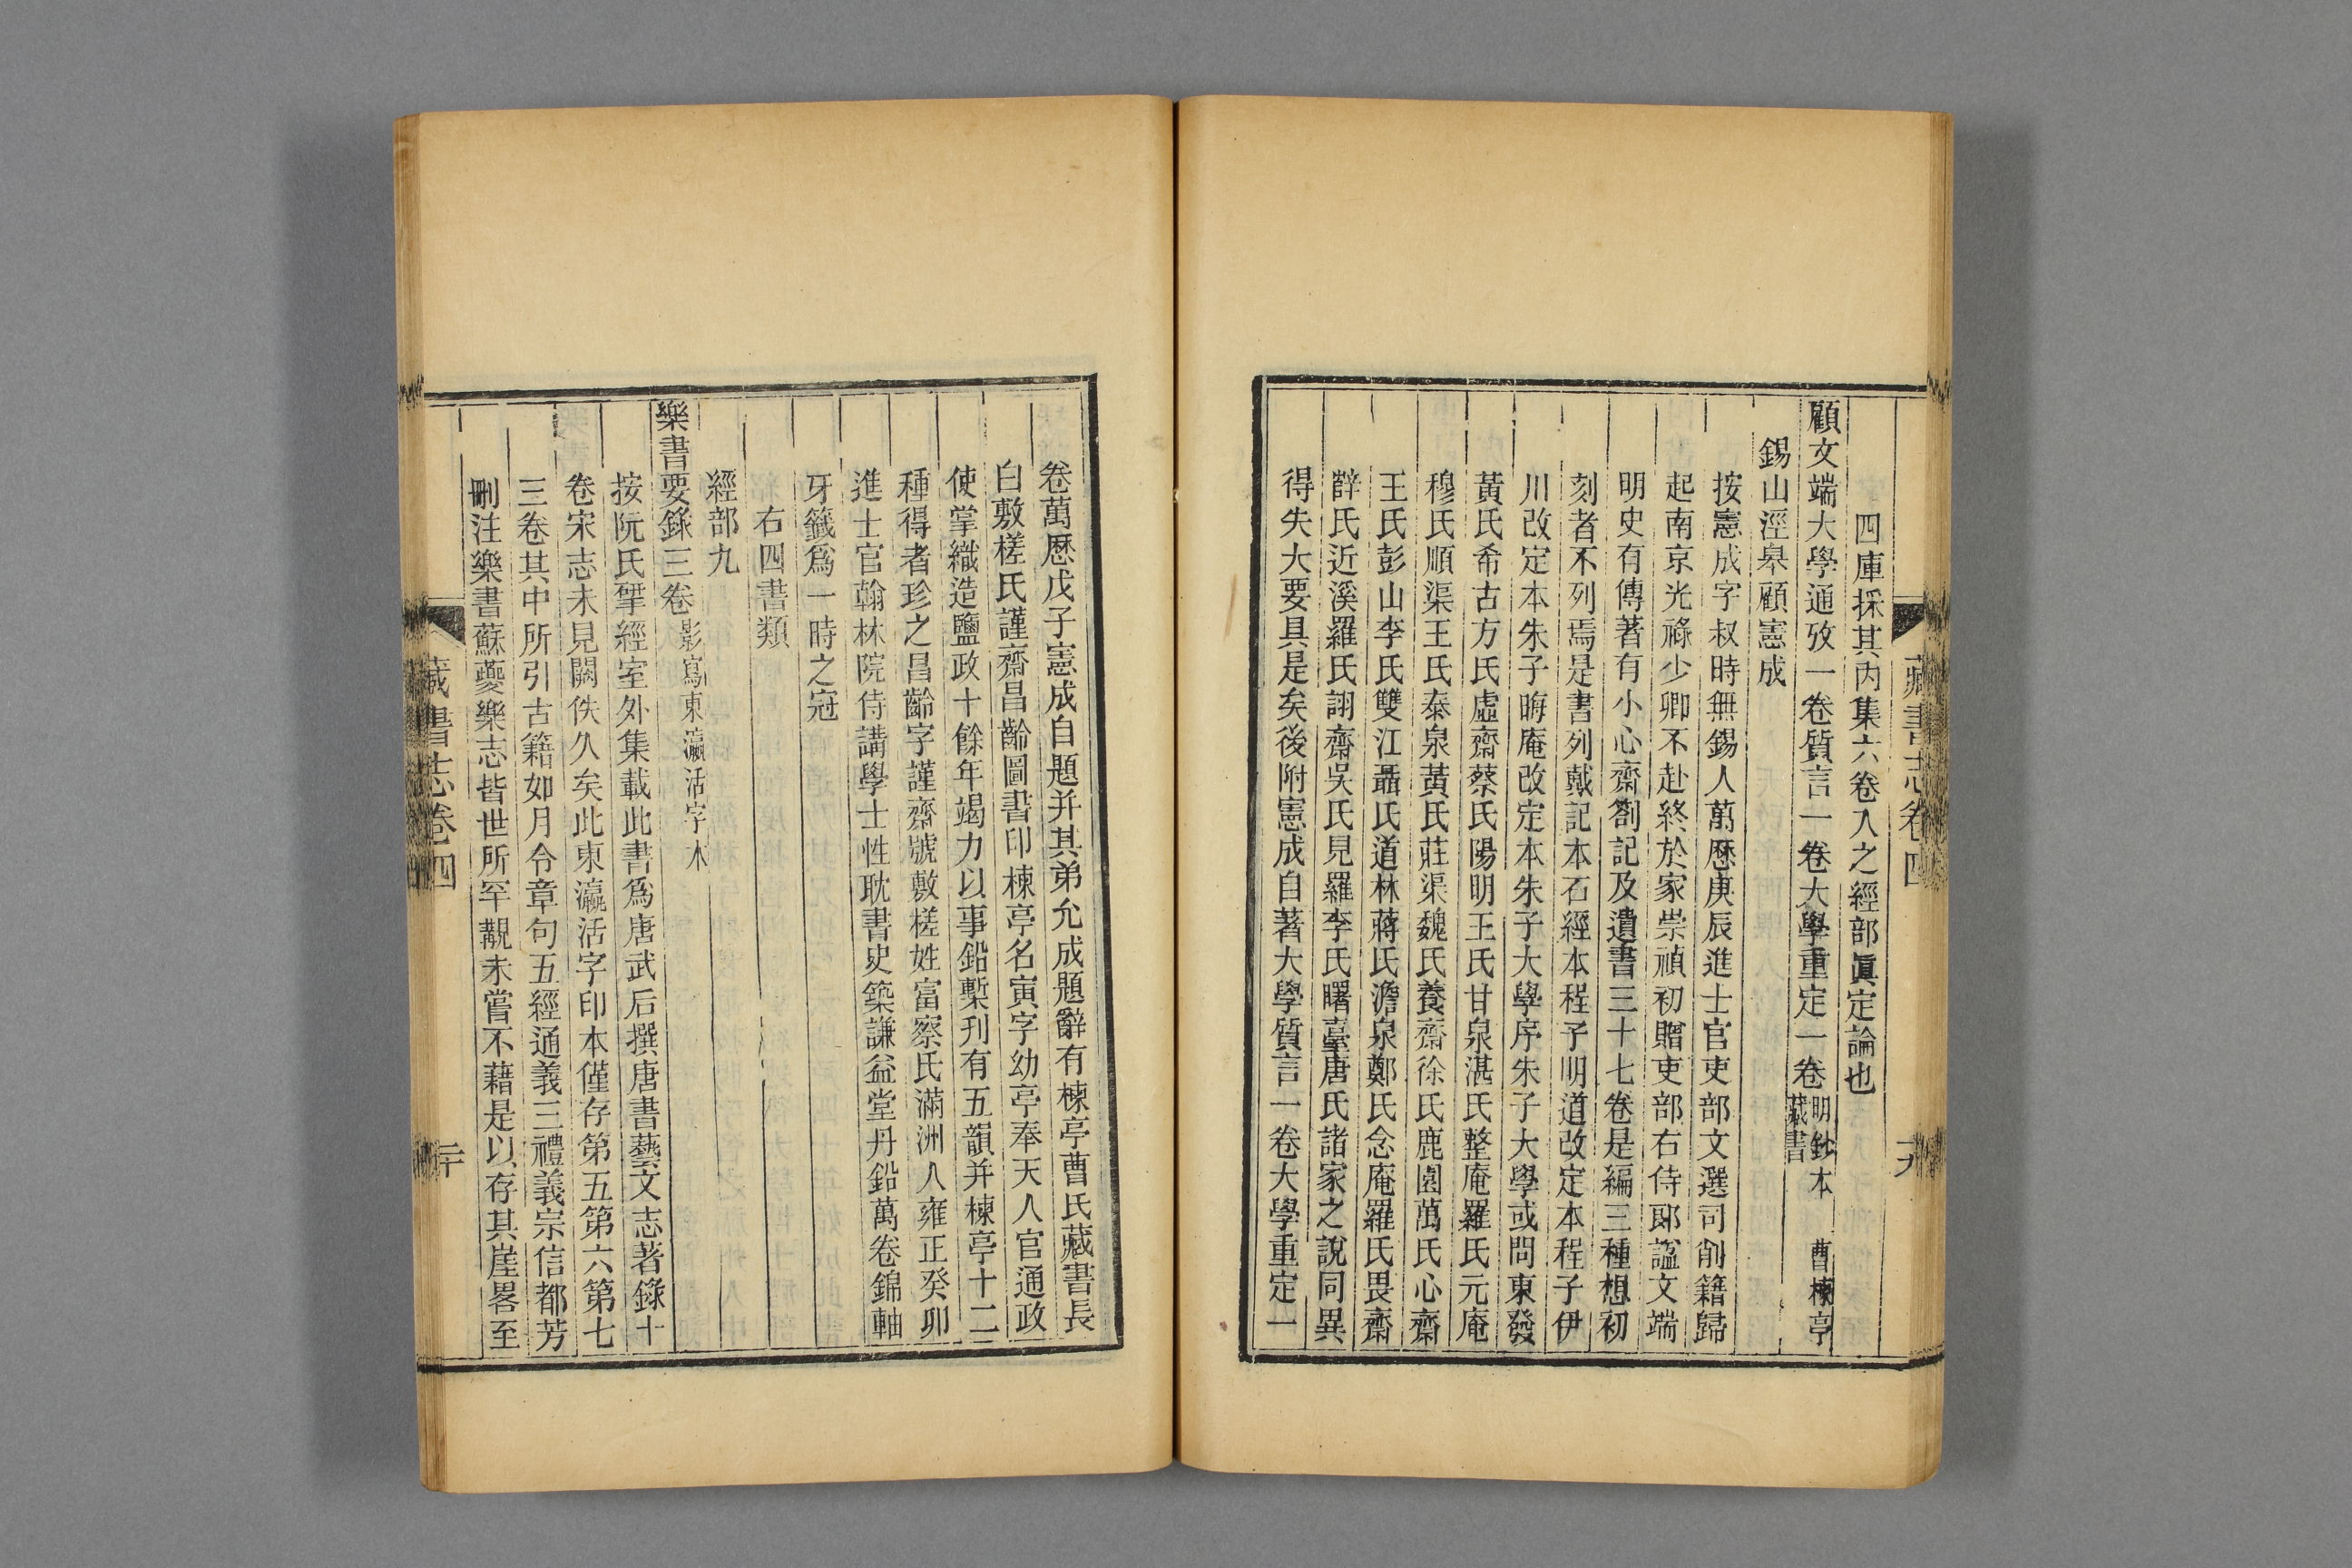 藏書志卷四
四庫採其內集六卷入之經部眞定論也
顧文端大學通攷一卷質言一卷大學重定一卷明鈔本 曹楝亭藏書
錫山涇皋顧憲成
按憲成字叔時無錫人萬歷庚辰進士官吏部文選司削籍歸
起南京光祿少卿不赴終於家崇禎初贈吏部右侍郎諡文端
明史有傳著有小心齋劄記及遺書三十七卷是編三種想初
刻者不列焉是書列戴記本石經本程子明道改定本程子伊
川改定本朱子晦庵改定本朱子大學序朱子大學或問東發
黃氏希古方氏虛齋蔡氏陽明王氏甘泉湛氏整庵羅氏元庵
穆氏順渠王氏泰泉黃氏莊渠魏氏養齋徐氏鹿園萬氏心齋
王氏彭山李氏雙江聶氏道林蔣氏澹泉鄭氏念庵羅氏畏齋
薛氏近溪羅氏詡齋吳氏見羅李氏曙臺唐氏諸家之說同異
得失大要具是矣後附憲成自著大學質言一卷大學重定一
卷萬歷戊子憲成自題并其弟允成題辭有楝亭曹氏藏書長
白敷槎氏謹齋昌齡圖書印楝亭名寅字幼亭奉天人官通政
使掌織造鹽政十餘年竭力以事鉛槧刊有五韻并楝亭十二
種得者珍之昌齡字謹齋號敷槎姓富察氏滿洲人雍正癸卯
進士官翰林院侍講學士性耽書史築謙益堂丹鉛萬卷錦軸
牙籤爲一時之冠
右四書類
經部九
樂書要錄三卷影寫東瀛活字本
按阮氏揅經室外集載此書爲唐武后撰唐書藝文志著錄十
卷宋志未見闕佚久矣此東瀛活字印本僅存第五第六第七
三卷其中所引古籍如月令章句五經通義三禮義宗信都芳
刪注樂書蘇夔樂志皆世所罕覯未嘗不藉是以存其崖畧至
藏書志卷四
二十